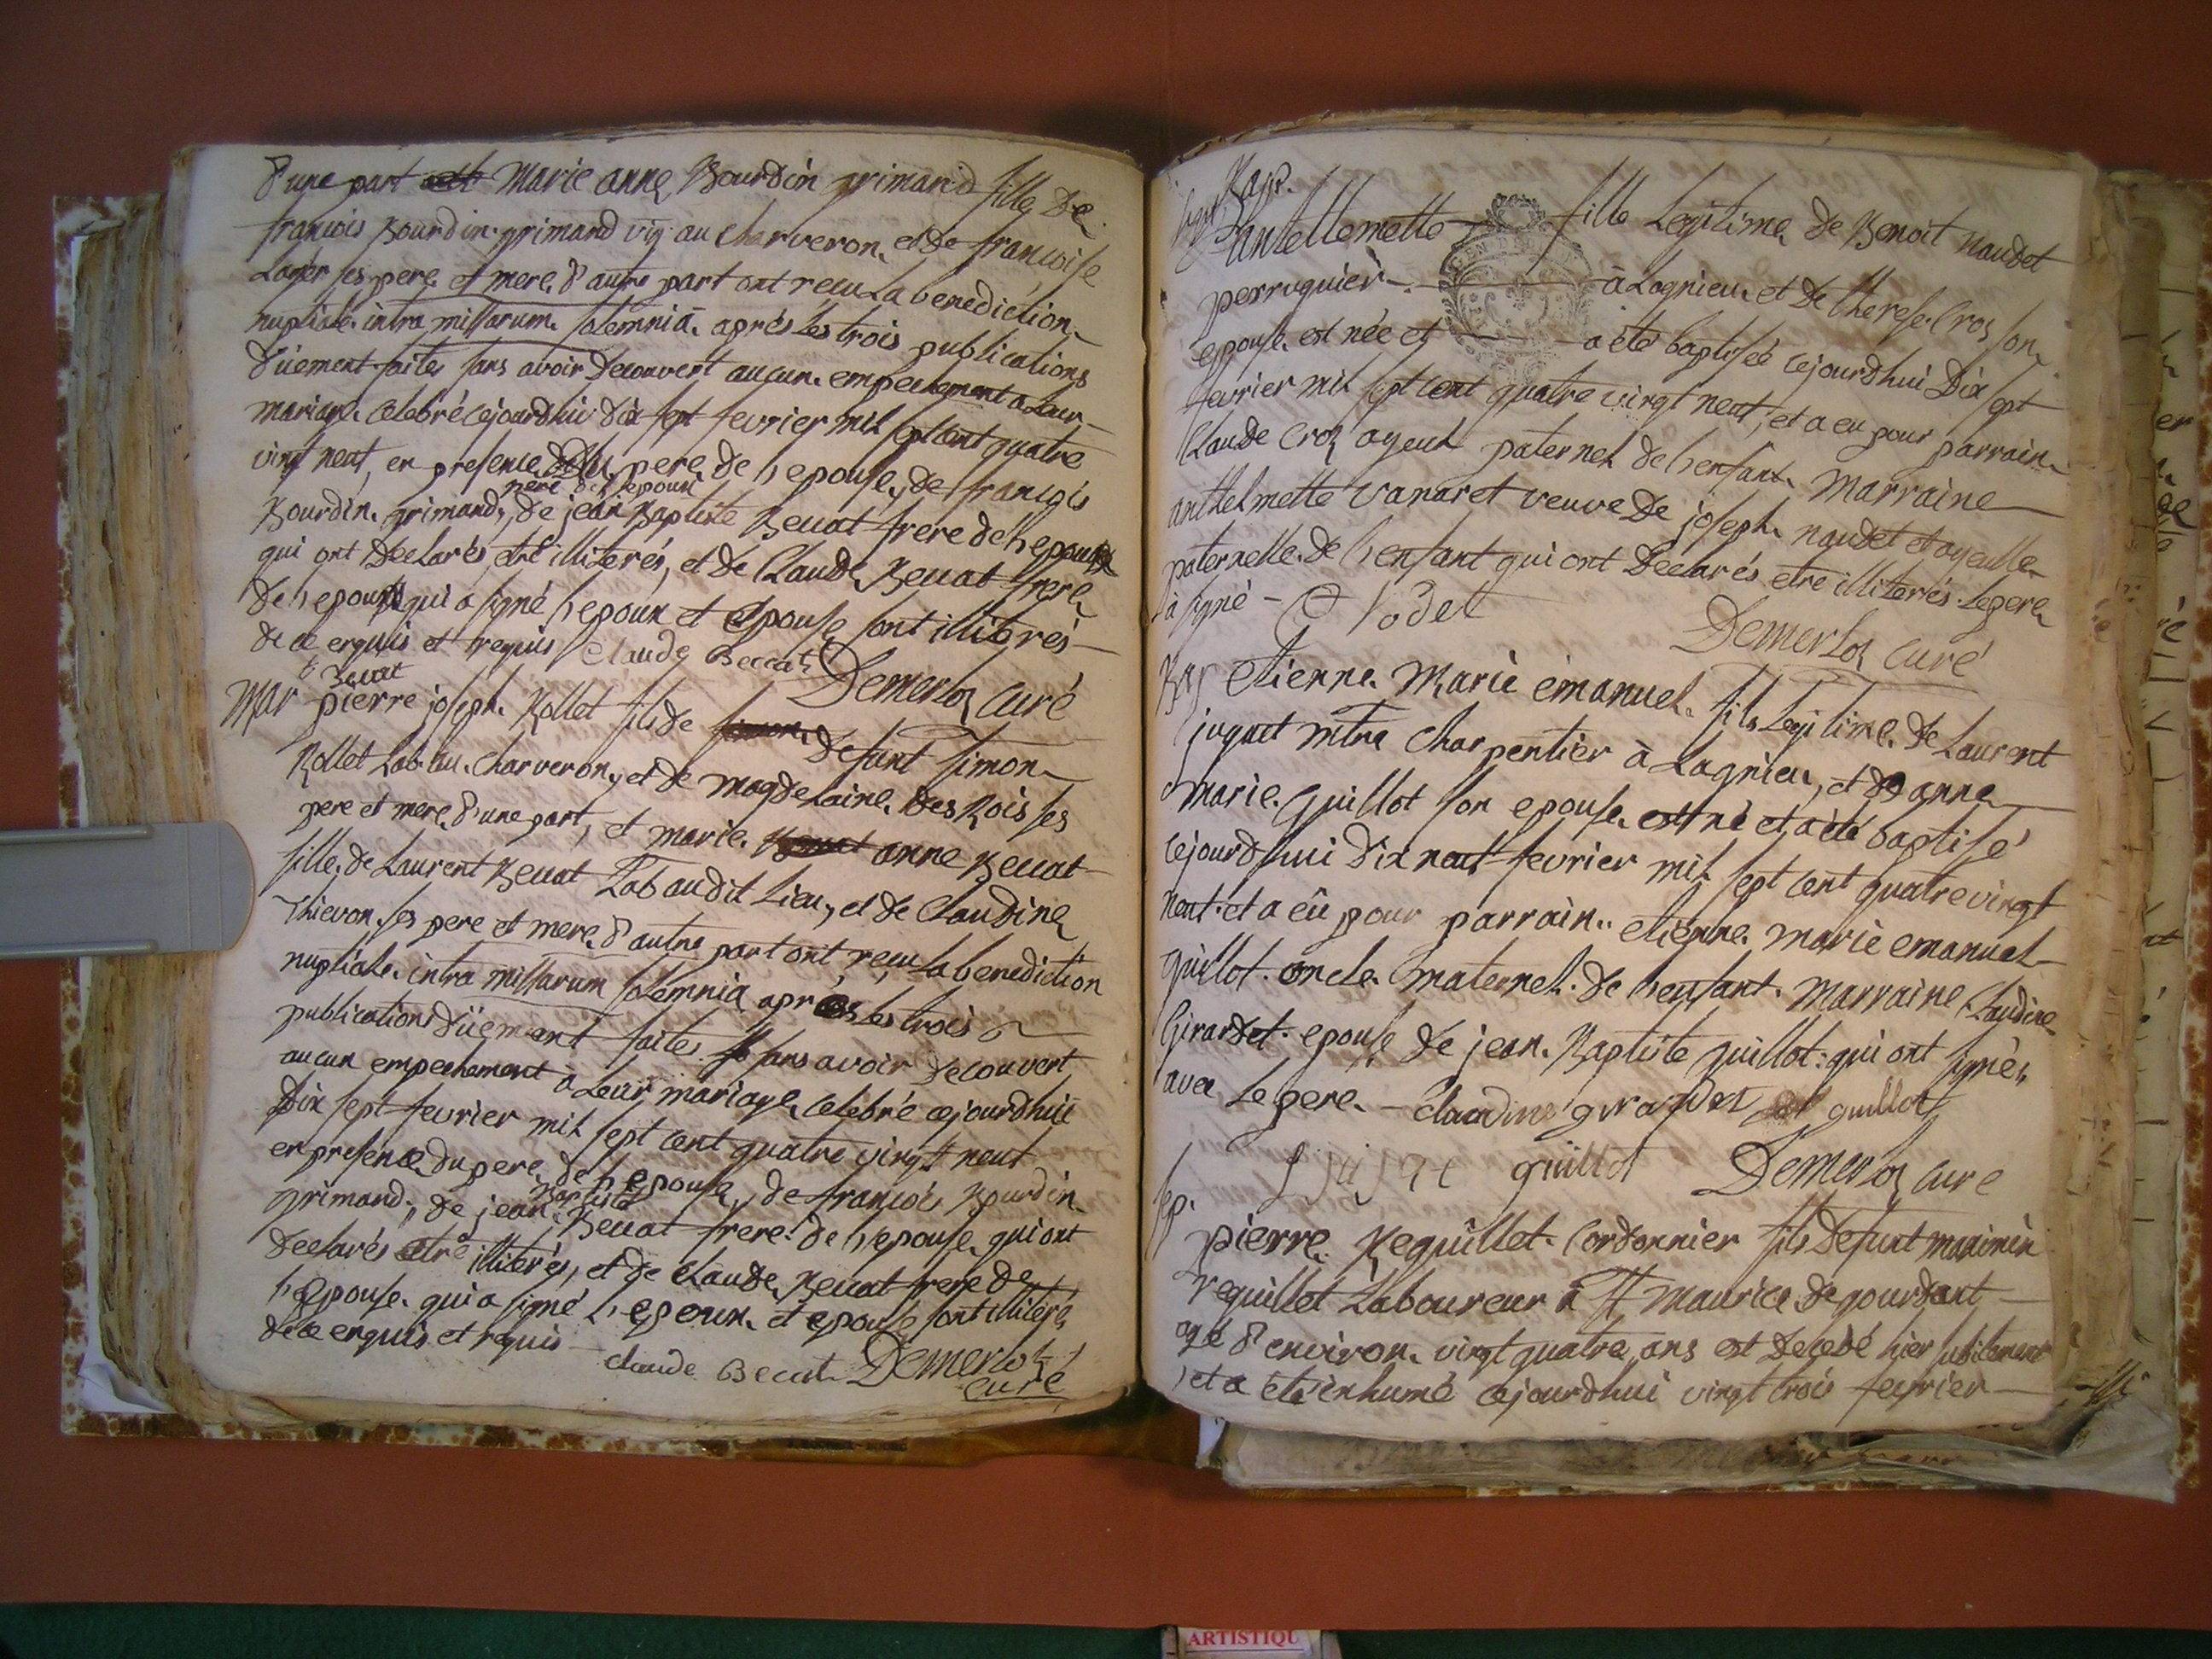 d'une part Marie anne Bourdin grimand fille de
francois Bourdin grimand vig. au charveron, et de francoise
Loyer ses pere et mere d'autre part ont recu La benediction
nuptiale intra missarum solemnia, aprés les trois publications
düement faites sans avoir decouvert aucun empechement a Leur
mariage celebré cejourdhui dix sept fevrier mil sept cent quatre
vingt neuf, en presence du pere de l'epouse, de francois
père de l'epoux
Bourdin grimand, de jean Baptiste Beccat frere de l'epoux
qui ont declarés etre illiterés, et de Claude Beccat frere
de l'epoux qui a signé l'epoux et epouse sont illiterés
de ce enquis et requis Claude Beccat
b Beccat
Demerloz curé
Mar pierre joseph Rollet fils de defunt simon
Rollet Lab au charveron, et de magdelaine des Rois ses
pere et mere d'une part, et marie anne Beccat
fille de Laurent Beccat Lab audit Lieu, et de Claudine
Thievon ses pere et mere d'autre part ont reçu La benediction
nuptiale intra missarum solemnia aprés les trois
publications düement faites sans avoir decouvert
aucun empechement à Leur mariage celebré cejourdhui
dix sept fevrier mil sept cent quatre vingt neuf
en presence du pere de l'epouse, de francois Bourdin
Baptiste
grimand, de jean Beccat frere de l'epouse qui ont
declarés etre illiterés, et de claude Beccat frere de
l'epouse qui a signé l'epoux et epouse sont illiterés
de ce enquis et requis
claude Beccat Demerloz
curé
Bap.
Antellemette fille Legitime de Benoit naudet
perruquier à Lagnieu et de therese Croz son
epouse est née et a été baptisée cejourdhui Dix sept
fevrier mil sept cent quatre vingt neuf, et a eu pour parrain
Claude Croz ayeul paternel de l'enfant Marraine
anthelmette vanaret veuve de joseph naudet et ayeulle
paternelle de l'enfant qui ont declarés etre illiterés Le pere
à signé - Nodet
Demerloz curé
Bap etienne Marie emanuel fils Legitime de Laurent
juquet mtre Charpentier à Lagnieu, et de anne
marie Guillot son epouse est né et a été baptisé
cejourdhui dix neuf fevrier mil sept cent quatre vingt
neuf et a eü pour parrain etienne marie emanuel
guillot oncle maternel de l'enfant Marraine Claudine
Girardet epouse de jean Baptiste guillot qui ont signés
avec Le pere - claudine girardet guillot
guillot Demerloz curé
sep.
pierre Requillet Cordonnier fils defunt maximin
requillet Laboureur à st maurice de gourdant
agé d'environ vingt quatre ans est decedé hier subitement
et a eté inhumé cejourdhui vingt trois fevrier
ARTISTIQU